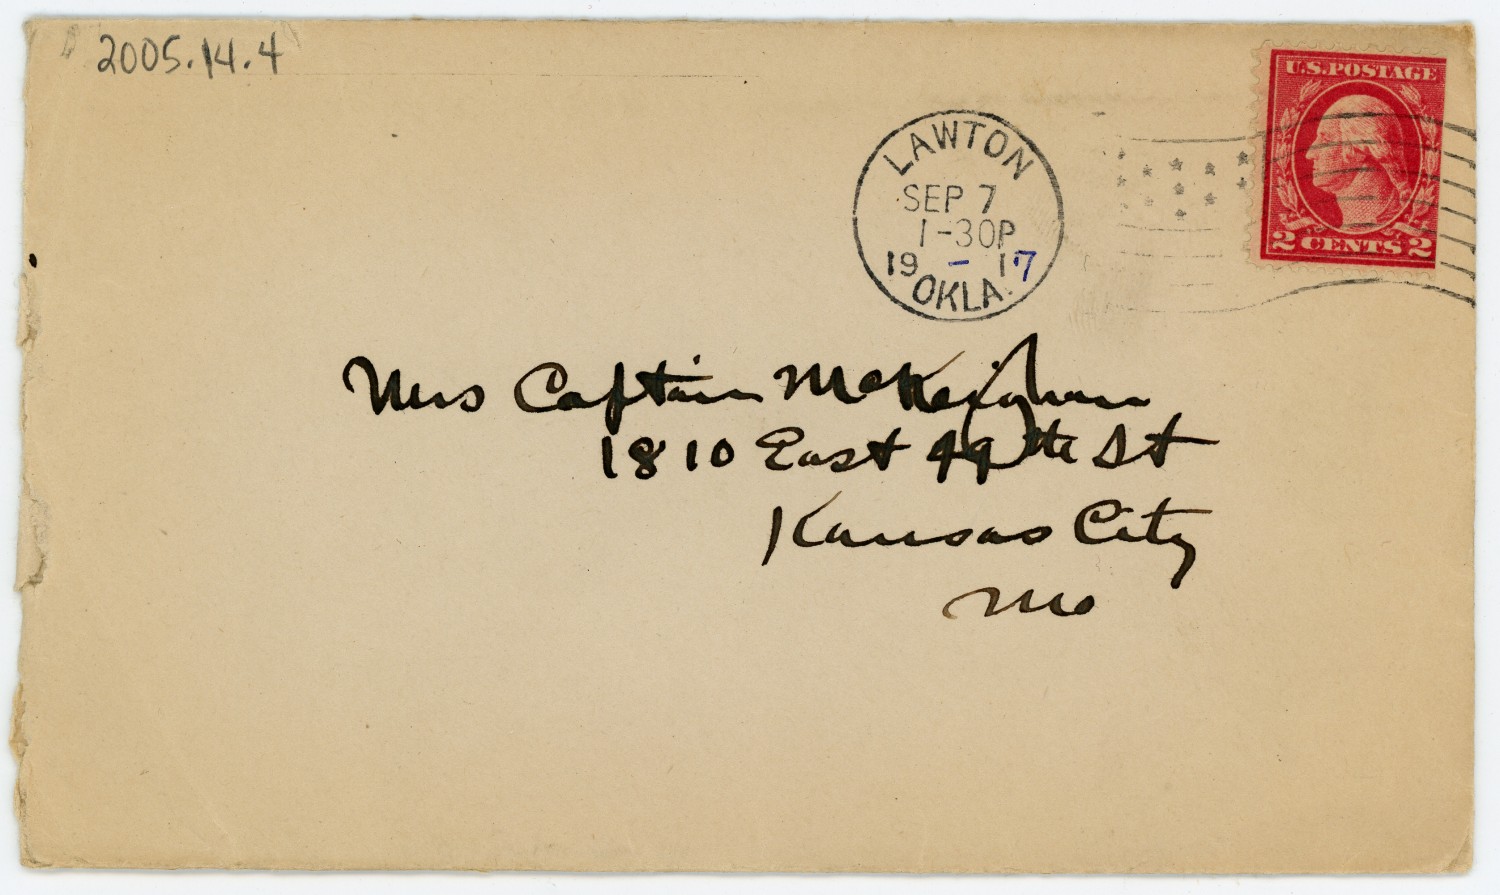 2005.14.4
U.S. POSTAGE
2 CENTS 2
LAWTON
SEP 7
1-30P
19 - 17
OKLA.
Mrs Captain McKeighan
1810 East 49th St
Kansas City
Mo